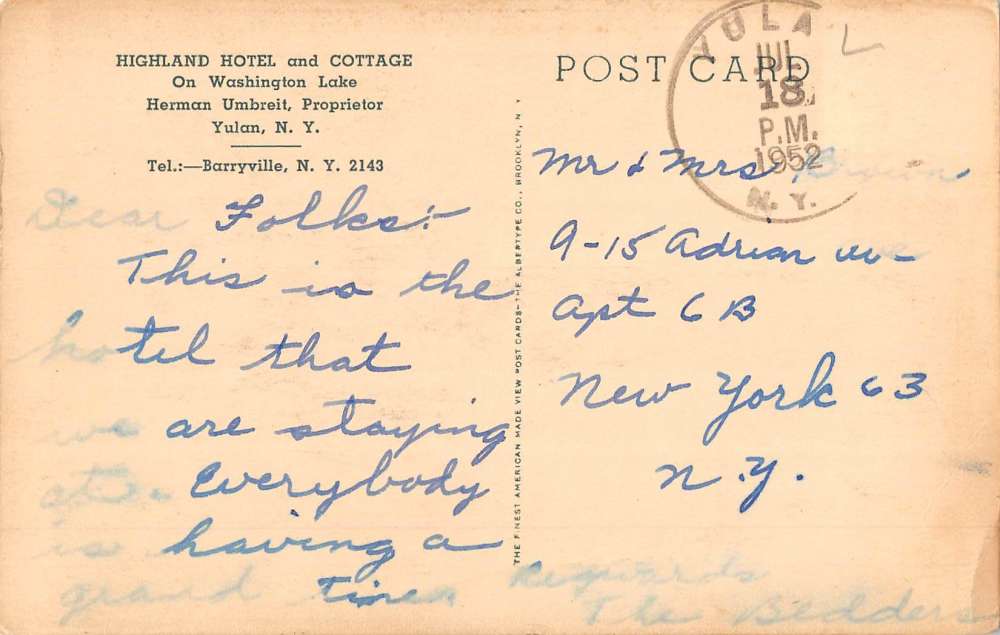 HIGHLAND HOTEL and COTTAGE
On Washington Lake
Herman Umbreit, Proprietor
Yulan, N. Y.
Tel.:—Barryville, N. Y. 2143
Dear Folks:-
This is the
hotel that
we are staying
at. Everybody
is having a
grand time. Regards
The Bedders
THE FINEST AMERICAN MADE VIEW POST CARDS—THE ALBERTYPE CO., BROOKLYN, N.
POST CARD
YULA
JUL
18
P.M.
1952
N. Y.
Mr & Mrs Brown
9-15 Adrian Ave-
Apt 6 B
New York 63
N.Y.